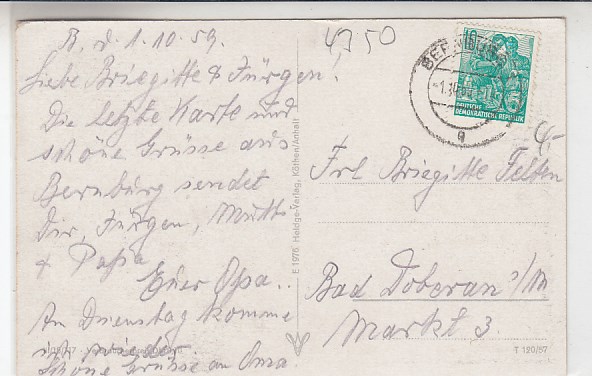 B. d. 1.10.59.
Liebe Briegitte & Jürgen!
Die letzte Karte und
schöne Grüsse aus
Bernburg sendet
Dir, Jürgen, Mutti
& Papa
Euer Opa..
Am Dienstag komme
ich wieder.
Schöne Grüsse an Oma.
E 1976 Heldge-Verlag, Köthen/Anhalt
4750
BERNBURG
10
DEUTSCHE
DEMOKRATISCHE REPUBLIK
4,-
Frl Briegitte Felten
Bad Doberan i/M
Markt 3.
T 120/57